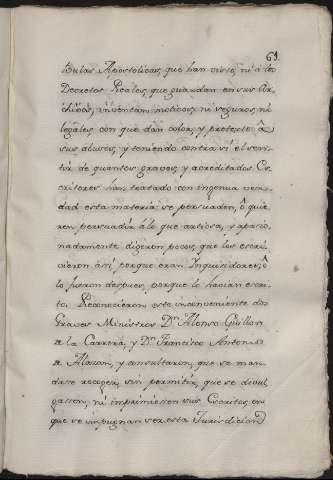 61
Bulas Apostolicas, que han visto, ni á los
Decretos Reales, que guardan en sus Ar-
chivos, inventan motivos, ni seguros, ni
legales, con que dan color, y pretexto á
sus abusos, y teniendo contra sí el sen-
tir de quantos graves, y acreditados Es-
critores han tratado con ingenua ver-
dad esta materia; se persuaden, ó quie-
ren persuadir á lo que antiova, y apasio-
nadamente digeron pocos, que los escri-
vieron assi, porque eran Inquisidores; ó
lo fueron despues, porque lo havian escri-
to. Reconocieron este inconveniente dos
Graves Ministros Dn. Alonso Guillen
de la Carrera, y Dn. Francisco Antonio
de Alarcon, y consultaron, que se man-
dase recoger, sin permitir, que se divul
gassen, ni imprimiessen sus Escritos, en
que se impugnan sea esta Jurisdicion